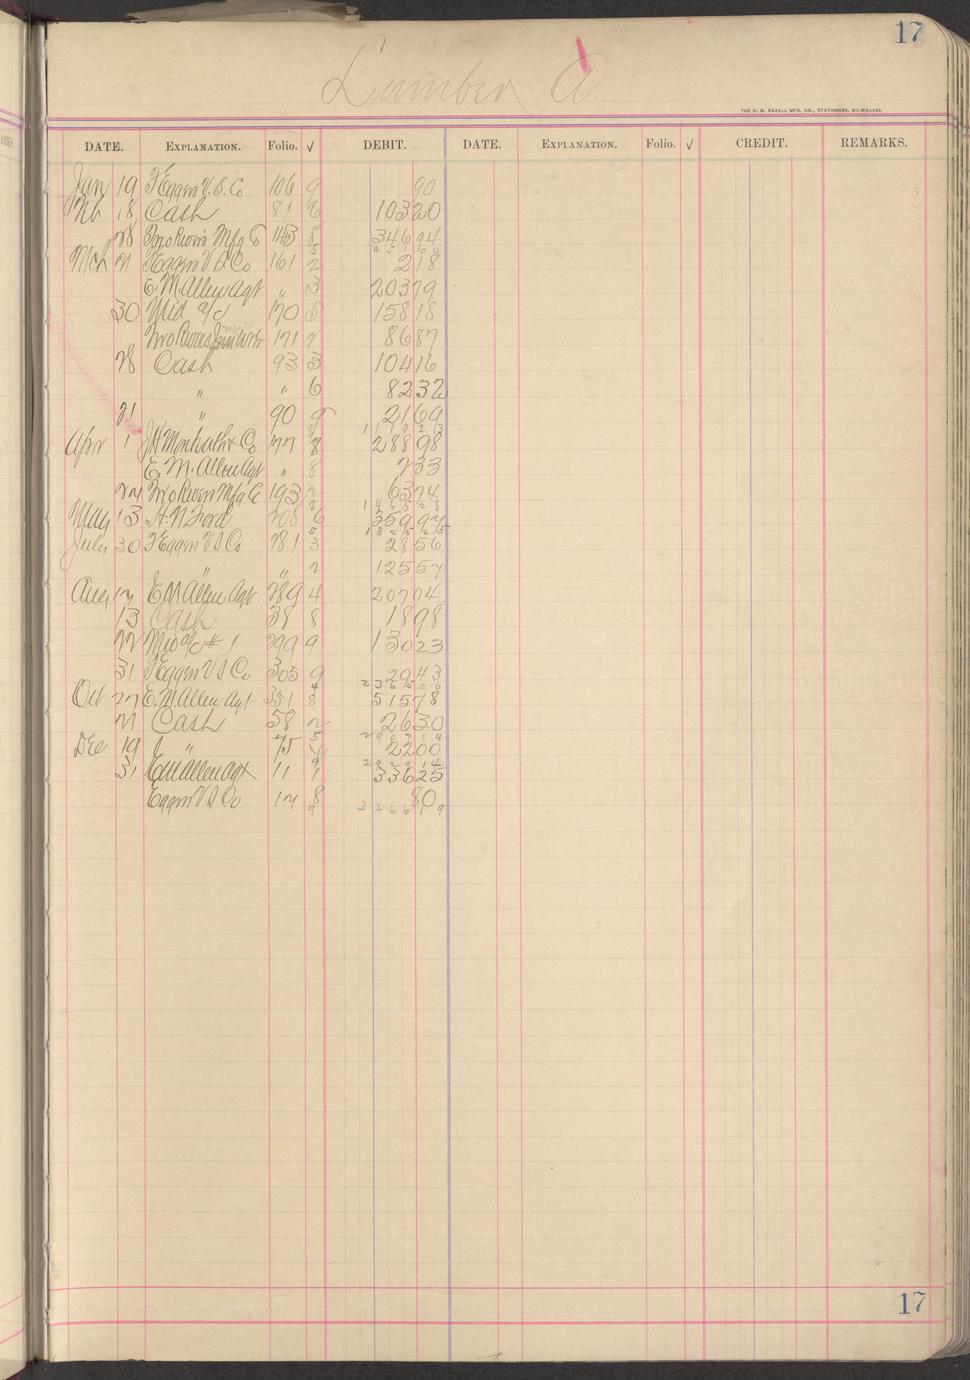 17
Lumber
THE H. G. RAZALL MFG. CO., STATIONERS, MILWAUKEE.
DATE. EXPLANATION. Folio. √ DEBIT. DATE. EXPLANATION. Folio. √ CREDIT. REMARKS.
Jan 19 F Eggers V. S. Co 106 9 90
Feb 18 Cash 81 6 103 20
28 Two Rivers Mfg Co 143 8 346 94
5 4 5 1 0 4
Mch 21 F Eggers V S Co 161 2 2 18
E. M. Allen Agt " 3 203 79
30 Mid a/c 170 5 158 18
Two Rivers 171 2 86 87
28 Cash 93 3 104 16
" " 6 82 32
21 " 90 9 21 69
1 1 1 0 2 3
Apr 1 & Co 177 8 288 98
E. M. Allen Agt " 8 7 33
22 Two Rivers Mfg Co 193 2 63 74
1 4 6 5 2 8
May 13 H. N. Ford 208 6 359 97
5 1 8 2 5 2 5
July 30 F Eggers V S Co 281 3 28 56
" " 2 125 57
Aug 12 E M Allen Agt 289 4 207 04
13 Cash 38 8 18 98
22 Mid a/c # 1 299 9 130 23
31 F Eggers V S Co 305 9 29 43
4 2 3 6 5 0 6
Oct 27 E. M. Allen Agt 351 8 515 78
21 Cash 58 2 26 30
5 2 9 0 7 1 4
Dec 19 " 75 22 00
9 2 9 2 9 1 4
31 E M Allen Agt 11 1 336 25
Eggers V S Co 12 8 80
9 3 2 6 6 1 9
17